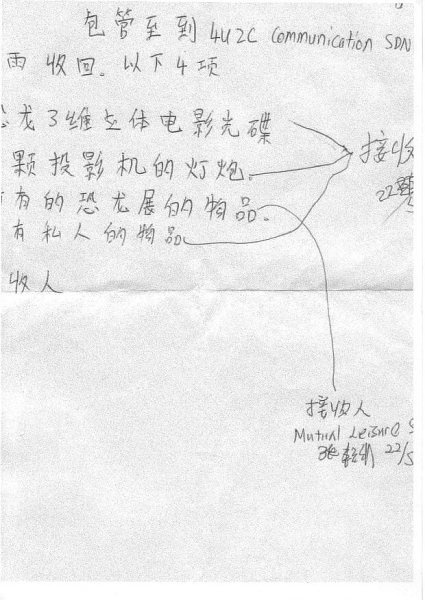 包管至到 4U2C Communication SDN
雨 收回。以下4项
龙3维立体电影光碟
颗投影机的灯炮。
有的恐龙展的物品。
有私人的物品。
接收
收人
接收人
Mutual Leisure S
22/5